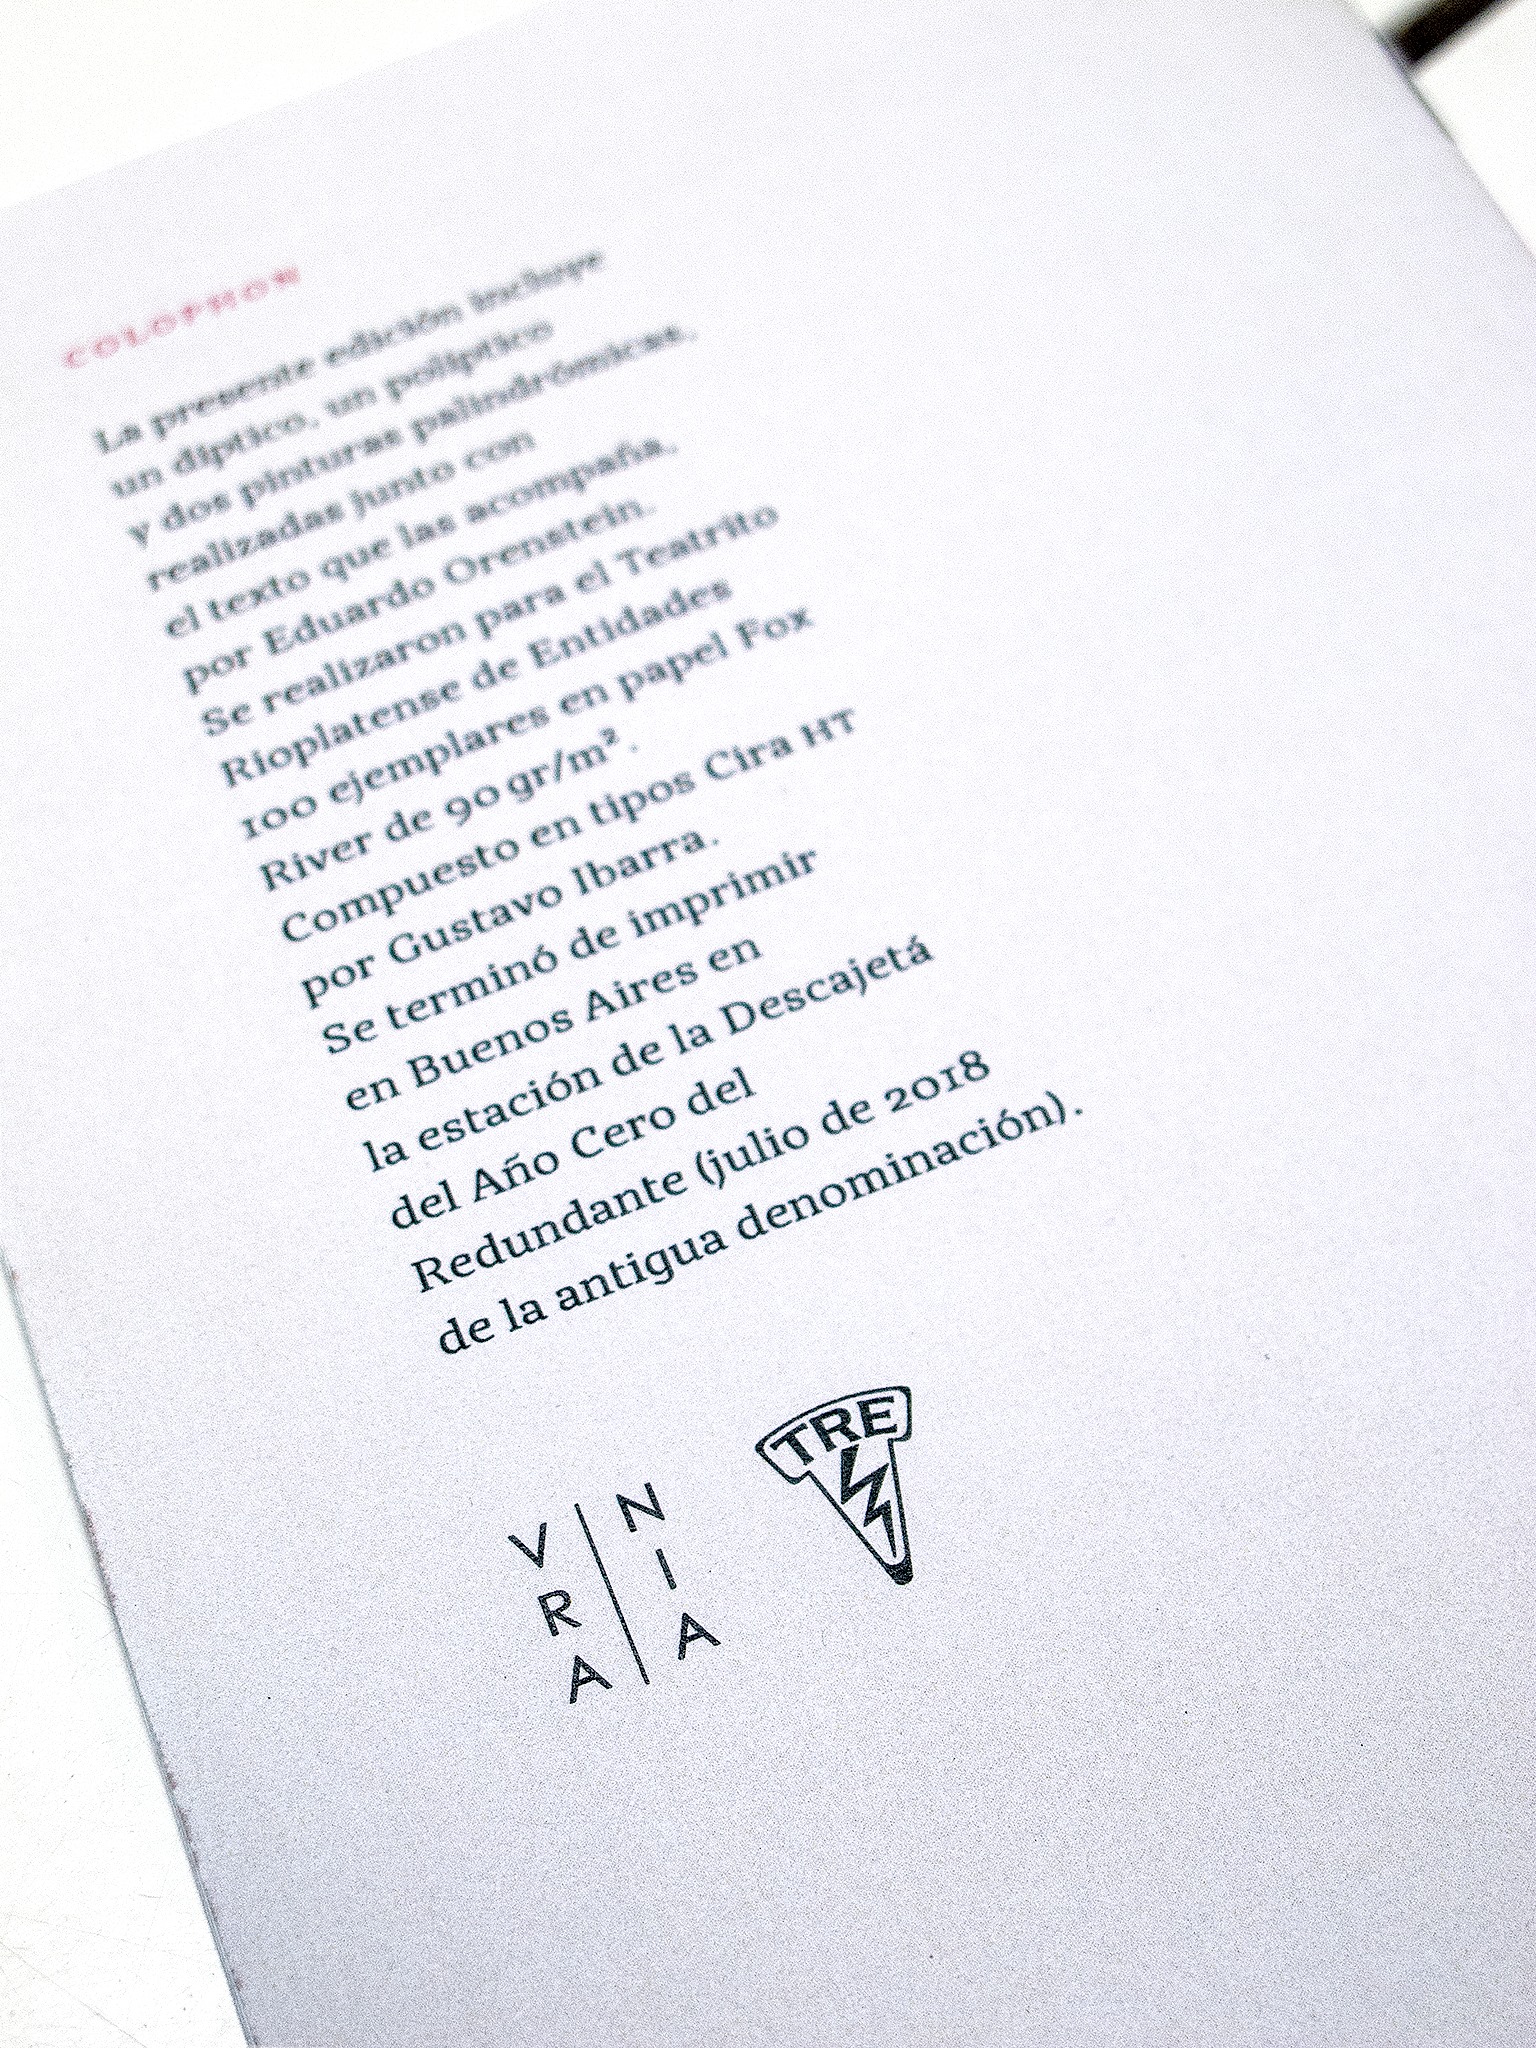 COLOPHON
La presente edición incluye
un díptico, un políptico
y dos pinturas palindrómicas,
realizadas junto con
el texto que las acompaña,
por Eduardo Orenstein.
Se realizaron para el Teatrito
Rioplatense de Entidades
100 ejemplares en papel Fox
River de 90 gr/m².
Compuesto en tipos Cira HT
por Gustavo Ibarra.
Se terminó de imprimir
en Buenos Aires en
la estación de la Descajetá
del Año Cero del
Redundante (julio de 2018
de la antigua denominación).
TRE
V N
R I
A A